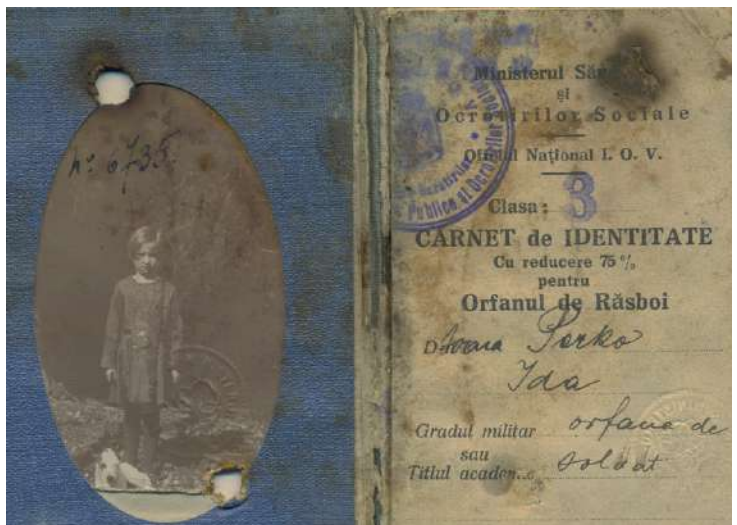 No 6735
Ministerul
și
Ocrotirilor Sociale
Oficiul Național I. O. V.
Clasa: 3
CARNET de IDENTITATE
Cu reducere 75 %
pentru
Orfanul de Răsboi
Perko
Ida
Gradul militar orfana de
sau
Titlul soldat
Publice și Ocrotirilor